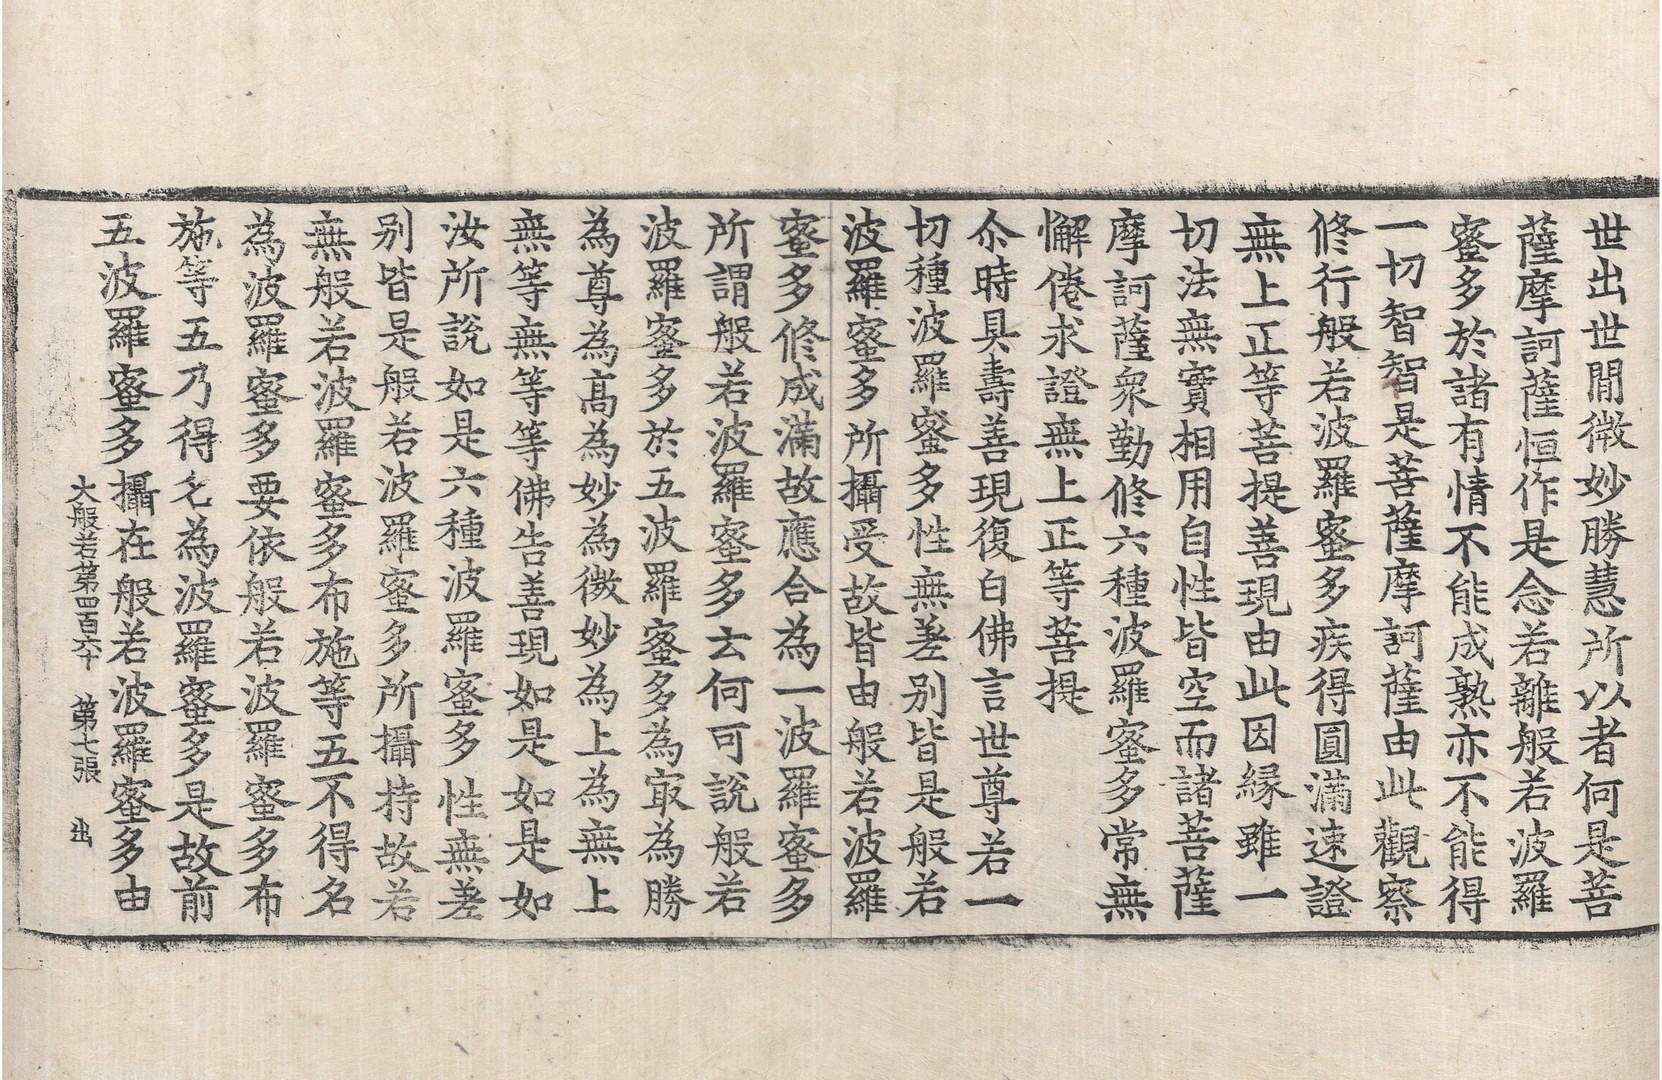 世出世閒微妙勝慧所以者何是菩
薩摩訶薩恒作是念若離般若波羅
蜜多於諸有情不能成熟亦不能得
一切智智是菩薩摩訶薩由此觀察
修行般若波羅蜜多疾得圓滿速證
無上正等菩提善現由此因緣雖一
切法無實相用自性皆空而諸菩薩
摩訶薩衆勤修六種波羅蜜多常無
懈倦求證無上正等菩提
尒時具壽善現復白佛言世尊若一
切種波羅蜜多性無差別皆是般若
波羅蜜多所攝受故皆由般若波羅
蜜多修成滿故應合為一波羅蜜多
所謂般若波羅蜜多云何可說般若
波羅蜜多於五波羅蜜多為㝡為勝
為尊為高為妙為微妙為上為無上
無等無等等佛告善現如是如是如
汝所說如是六種波羅蜜多性無差
別皆是般若波羅蜜多所攝持故若
無般若波羅蜜多布施等五不得名
為波羅蜜多要依般若波羅蜜多布
施等五乃得名為波羅蜜多是故前
五波羅蜜多攝在般若波羅蜜多由
大般若第四百六十　第七張　出